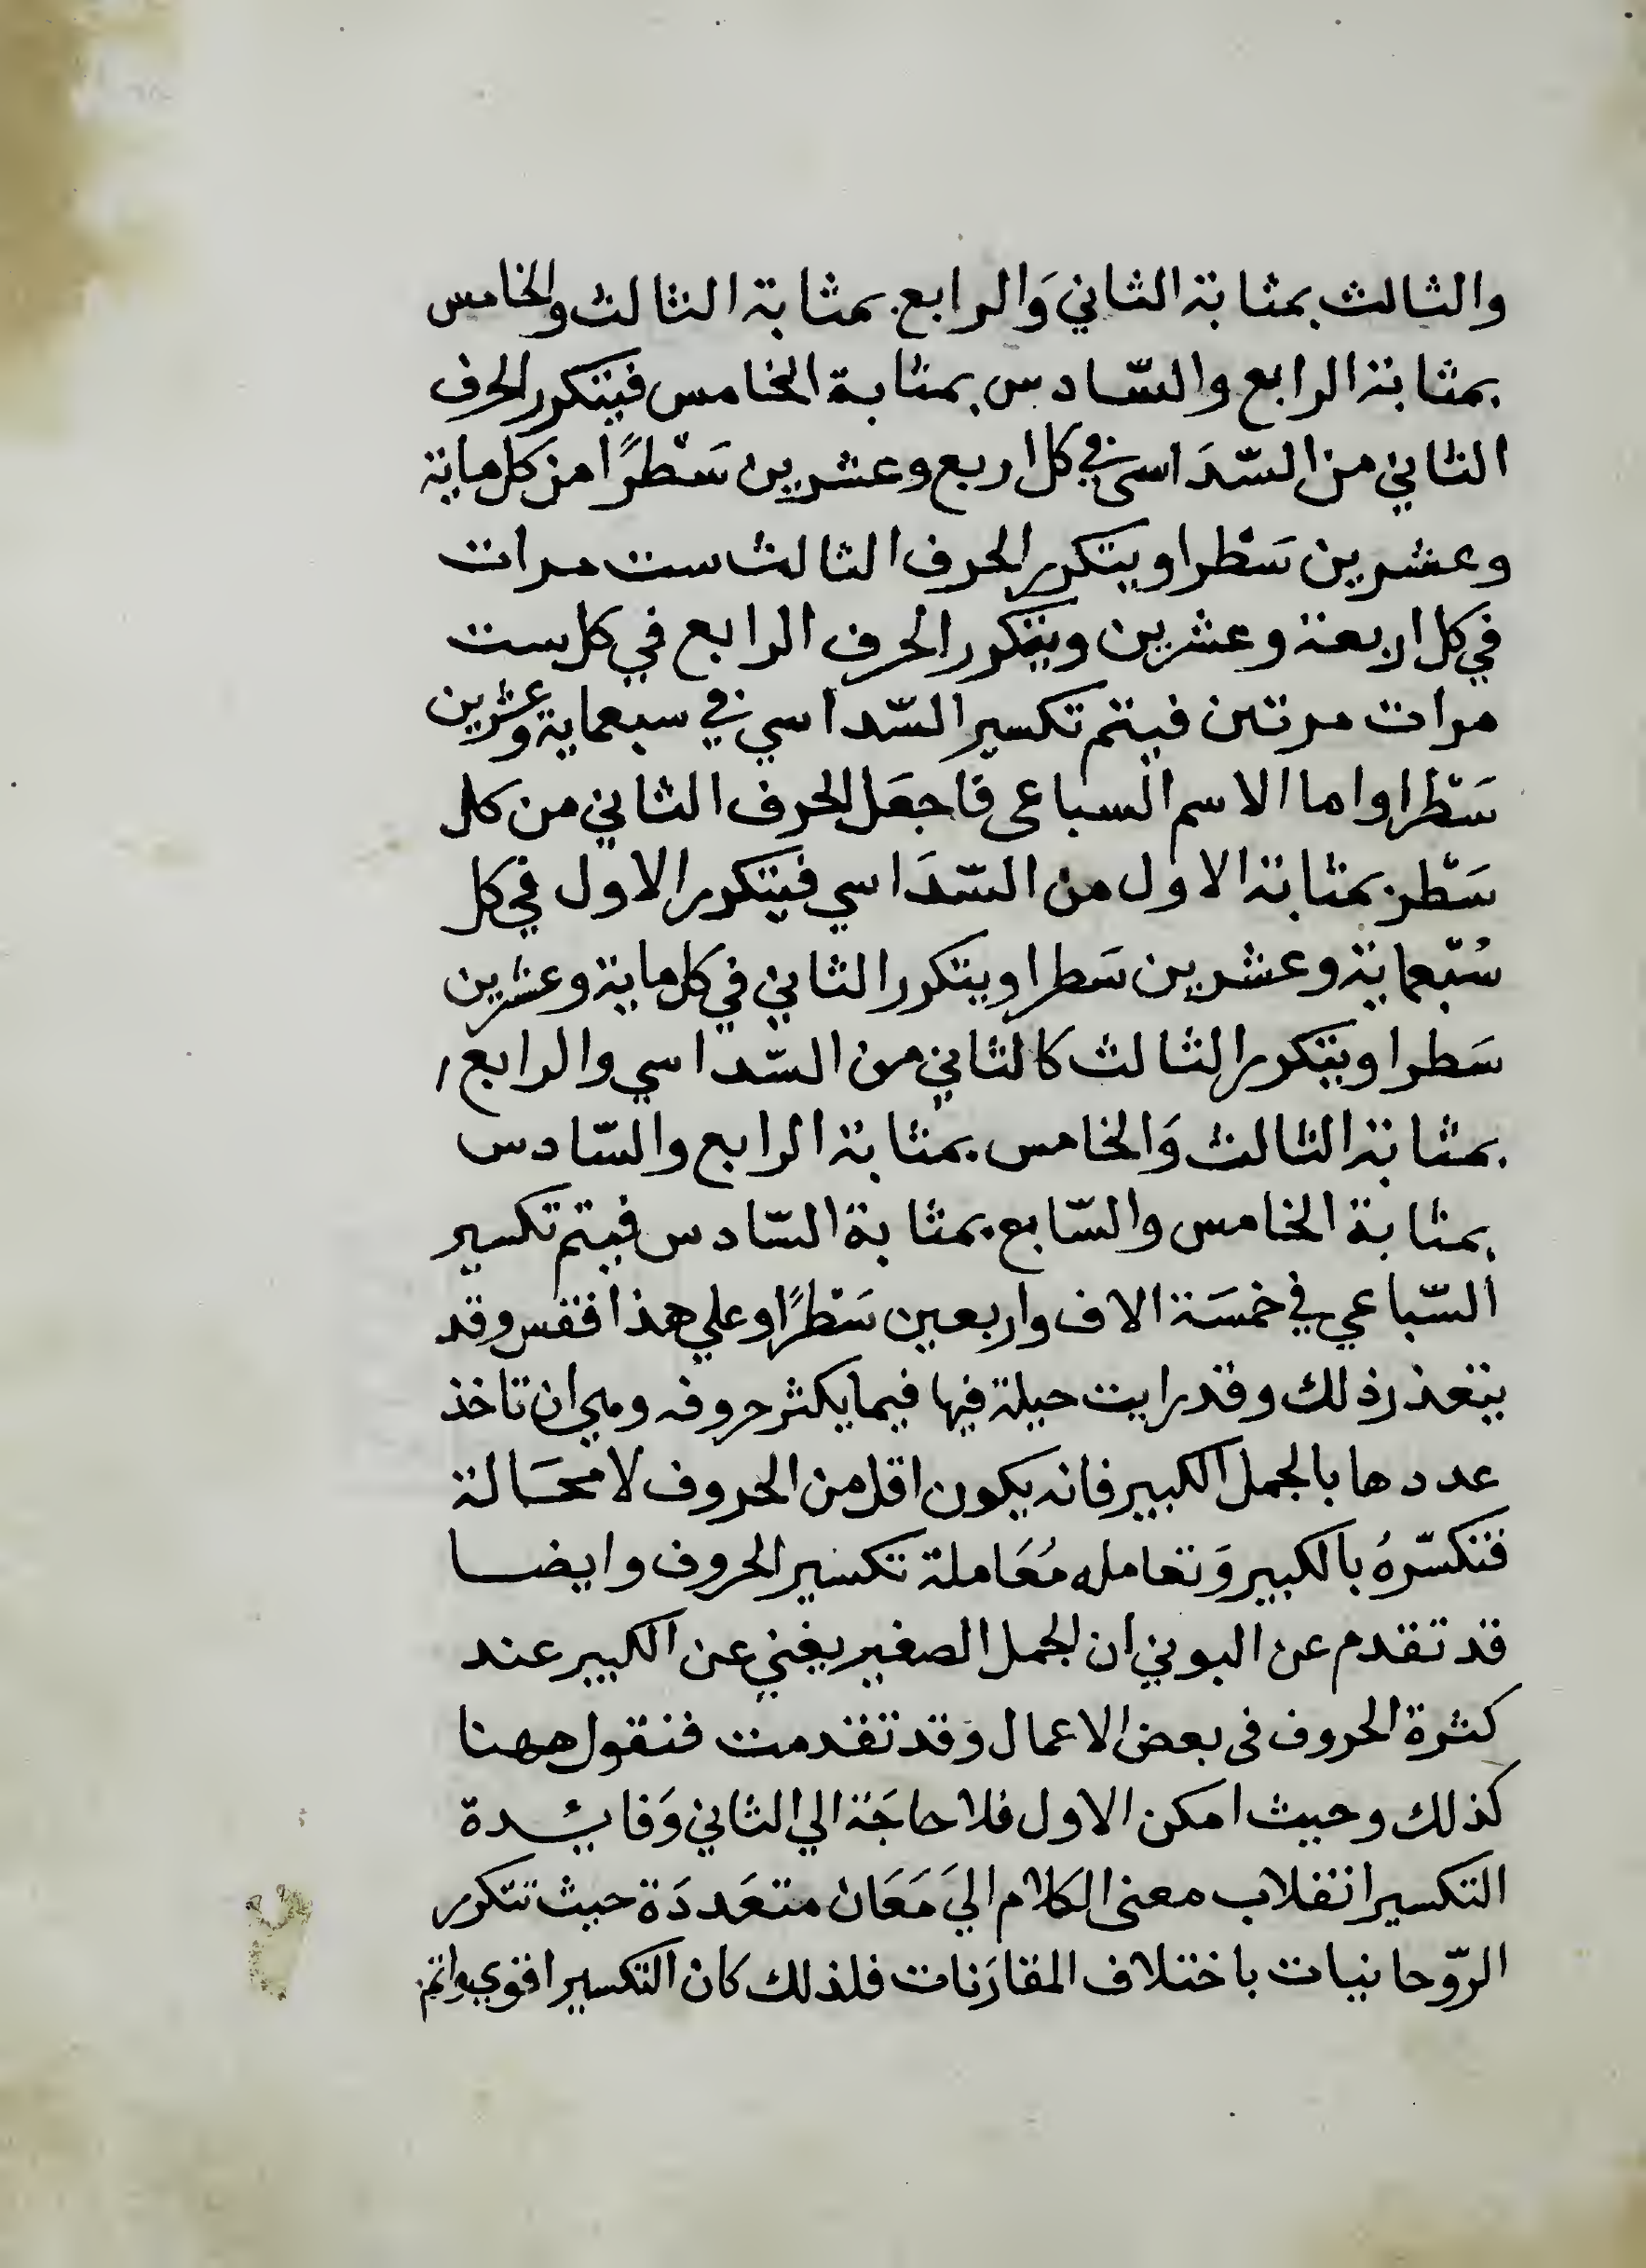 والثالث بمثابة الثاني وَالرابع بمثابة الثالث والخامس
بمثابة الرابع والسّادس بمثابة الخامس فيتكرر الحرف
الثاني من السّدَاسى في كل اربع وعشرين سَطرًا من كل ماية
وعشرين سَطرا ويتكرر الحرف الثالث ست مرات
في كل اربعة وعشرين ويتكرر الحرف الرابع في كل ست
مرات مرتين فيتم تكسير السّداسي في سبعماية وعشرين
سَطرا واما الاسم السباعى فاجعَل الحرف الثاني من كل
سَطر بمثابة الاول من السّدَاسي فيتكرر الاول في كل
سُبعماية وعشرين سَطرا ويتكرر الثاني في كل ماية وعشرين
سَطرا ويتكرر الثالث كالثاني من السّداسي والرابع
بمثابة الثالث وَالخامس بمثابة الرابع والسّادس
بمثابة الخامس والسّابع بمثابة السّادس فيتم تكسير
السّباعي في خمسَة الاف واربعين سَطرًا وعلي هذا فقس وقد
يتعذر ذلك وقد رايت حيلة فيها فيما يكثر حروفه وهي ان تاخذ
عددها بالجمل الكبير فانه يكون اقل من الحروف لا محَالة
فتكسّرهُ بالكبير وَتعامله مُعَاملة تكسير الحروف وايضا
قد تقدم عن البوني ان الجمل الصغير يغني عن الكبير عند
كثرة الحروف فى بعض الاعمال وَقد تقدمت فنقول ههنا
كذلك وحيث امكن الاول فلا حاجَة الي الثاني وَفايئدة
التكسير انقلاب معنى الكلام الي مَعَان متعَددَة حيث تتكرر
الرّوحانيات باختلاف المقارَنات فلذلك كان التكسير اقوي واتم